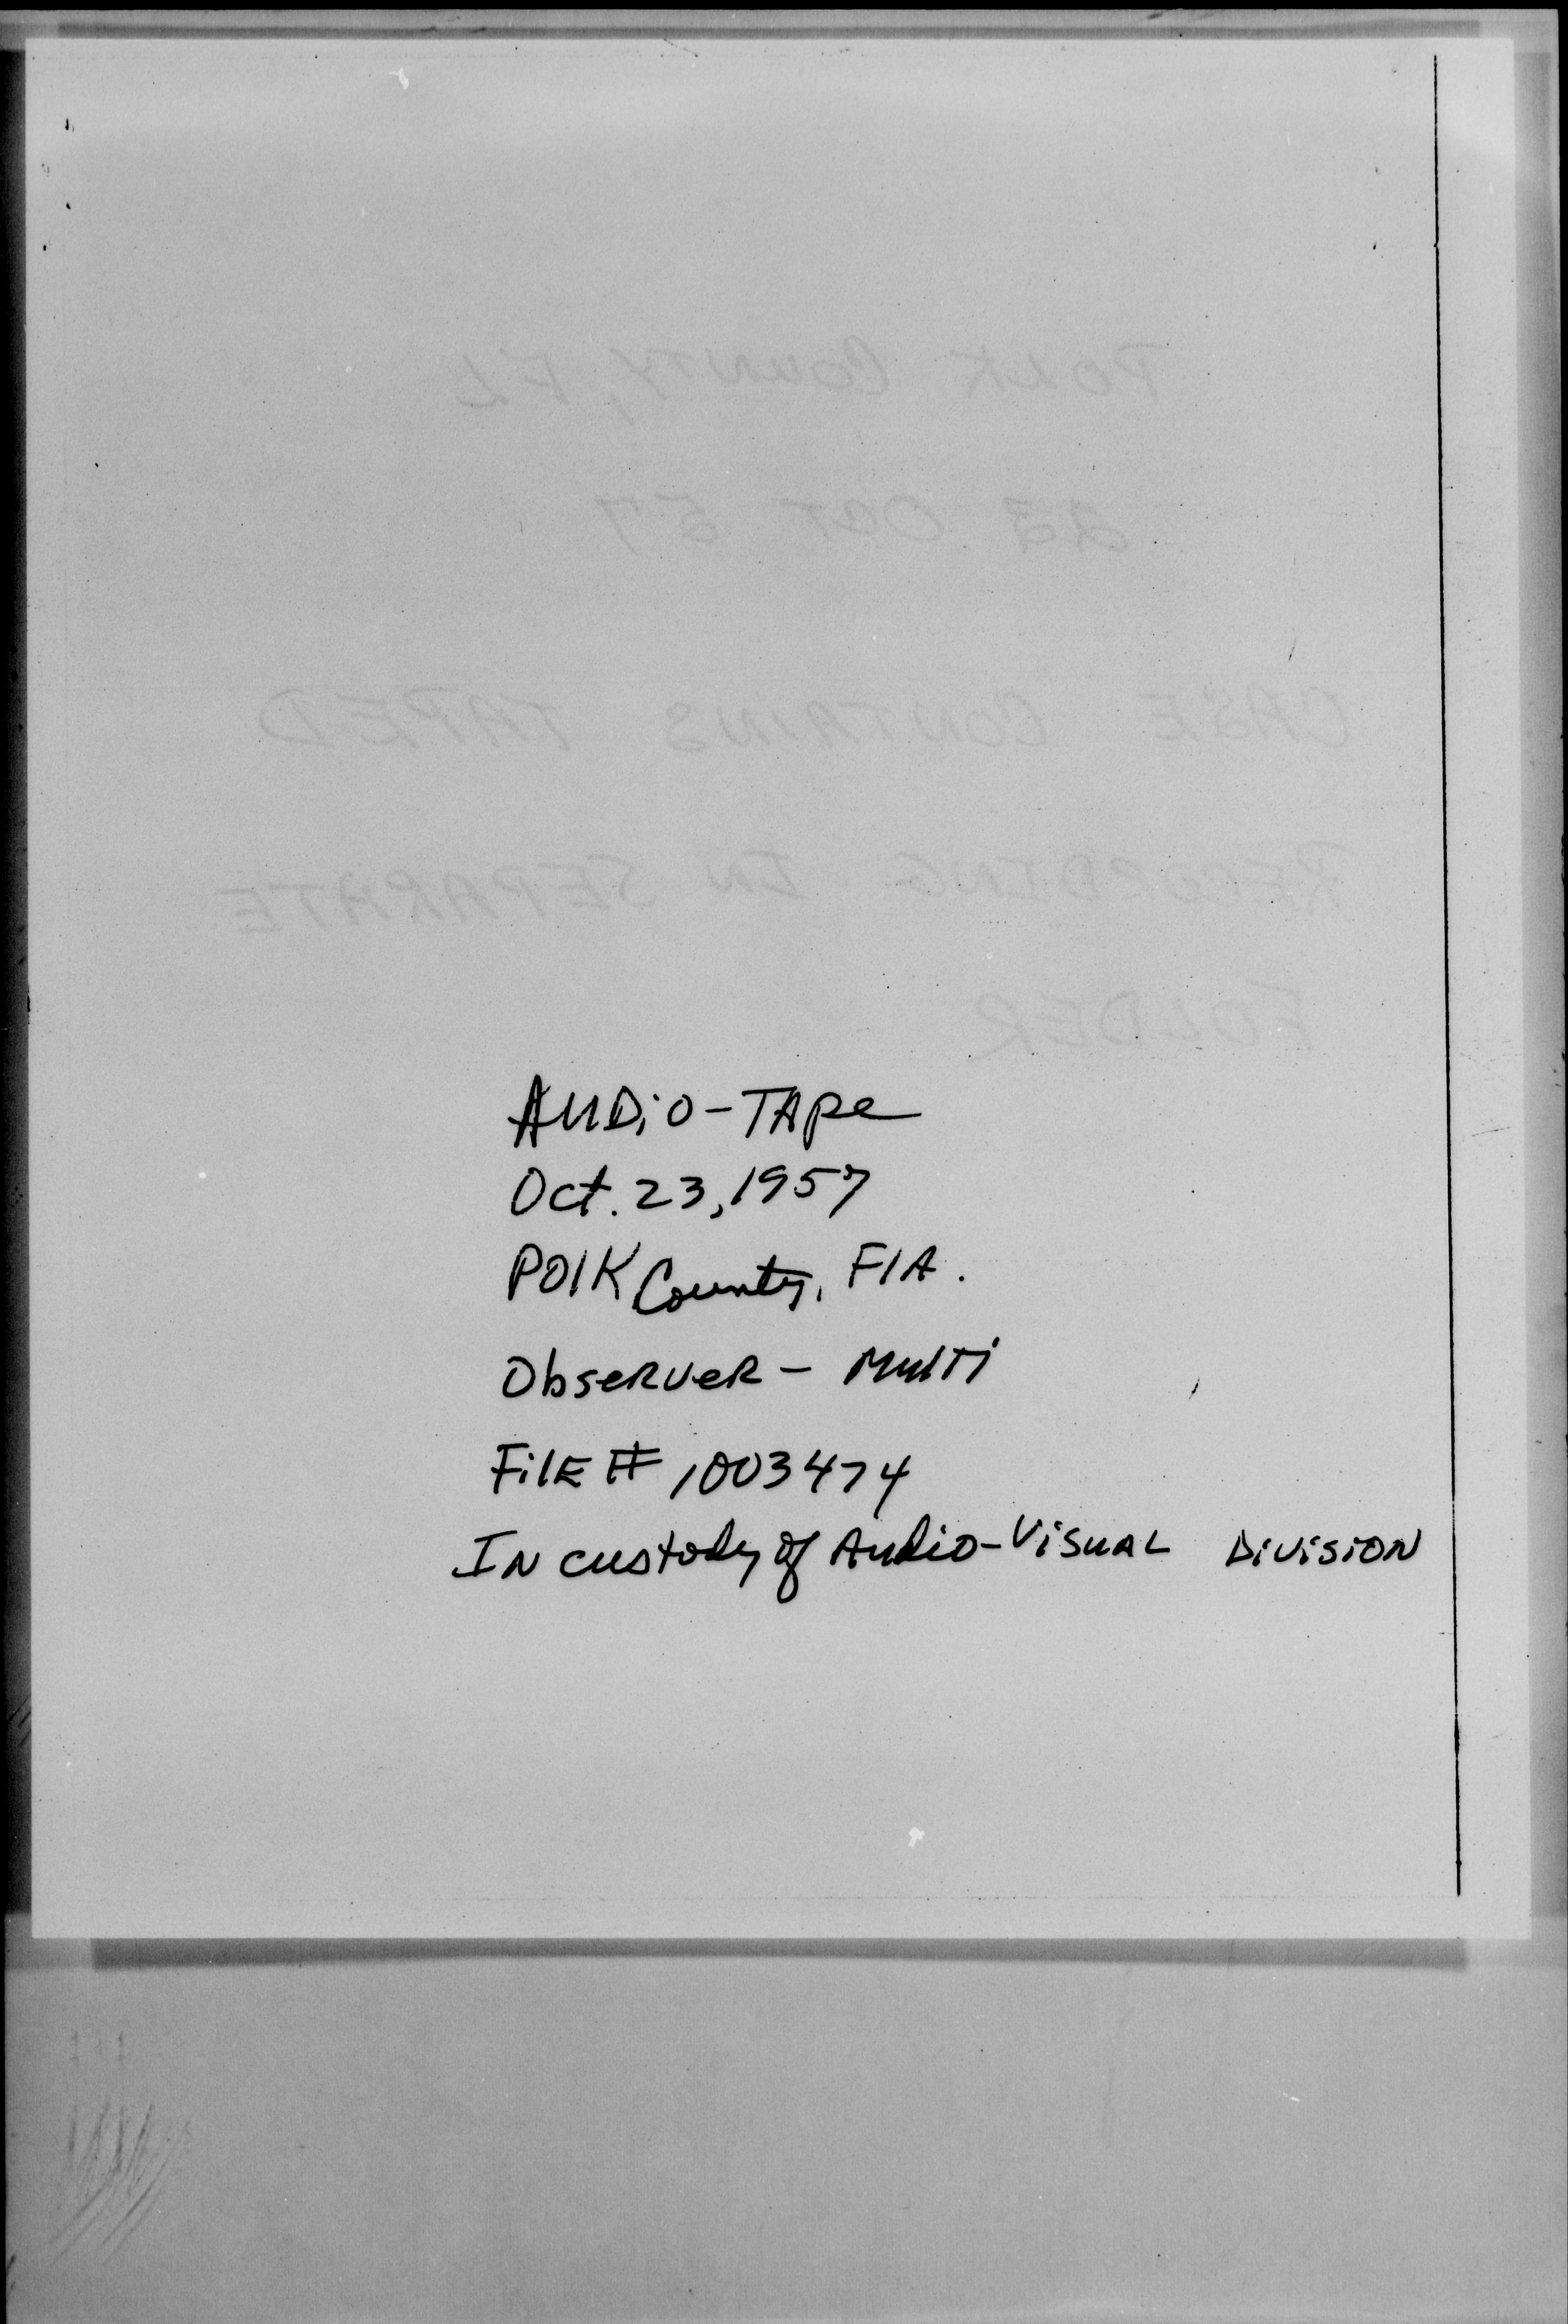 POLK COUNTY, FL
23 OCT 57
CASE CONTAINS TAPED
RECORDING IN SEPARATE
FOLDER
AUDiO-TAPe
Oct. 23, 1957
POlK County, FlA.
ObseRveR - MulTi
FilE # 1003474
IN custody of Audio-VisuAL DivisioN